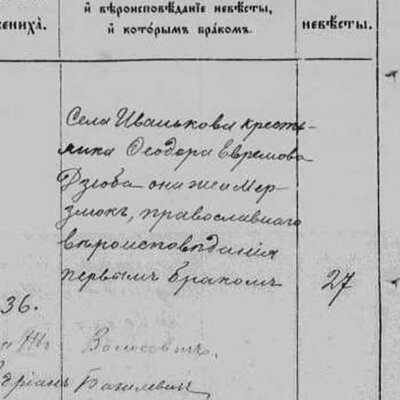 и҆ вѣроисповѣданїе невѣсты,
и҆ кото́рымъ бра́комъ.
жениха̀.
невѣ́сты.
Села Иванькова крестья-
нина Ѳеодора Ефремова
Дзюба она же и Мер-
злюкъ, православнаго
вѣроисповѣданія
первымъ бракомъ
27
36.
Волосовтъ.
Базилевич